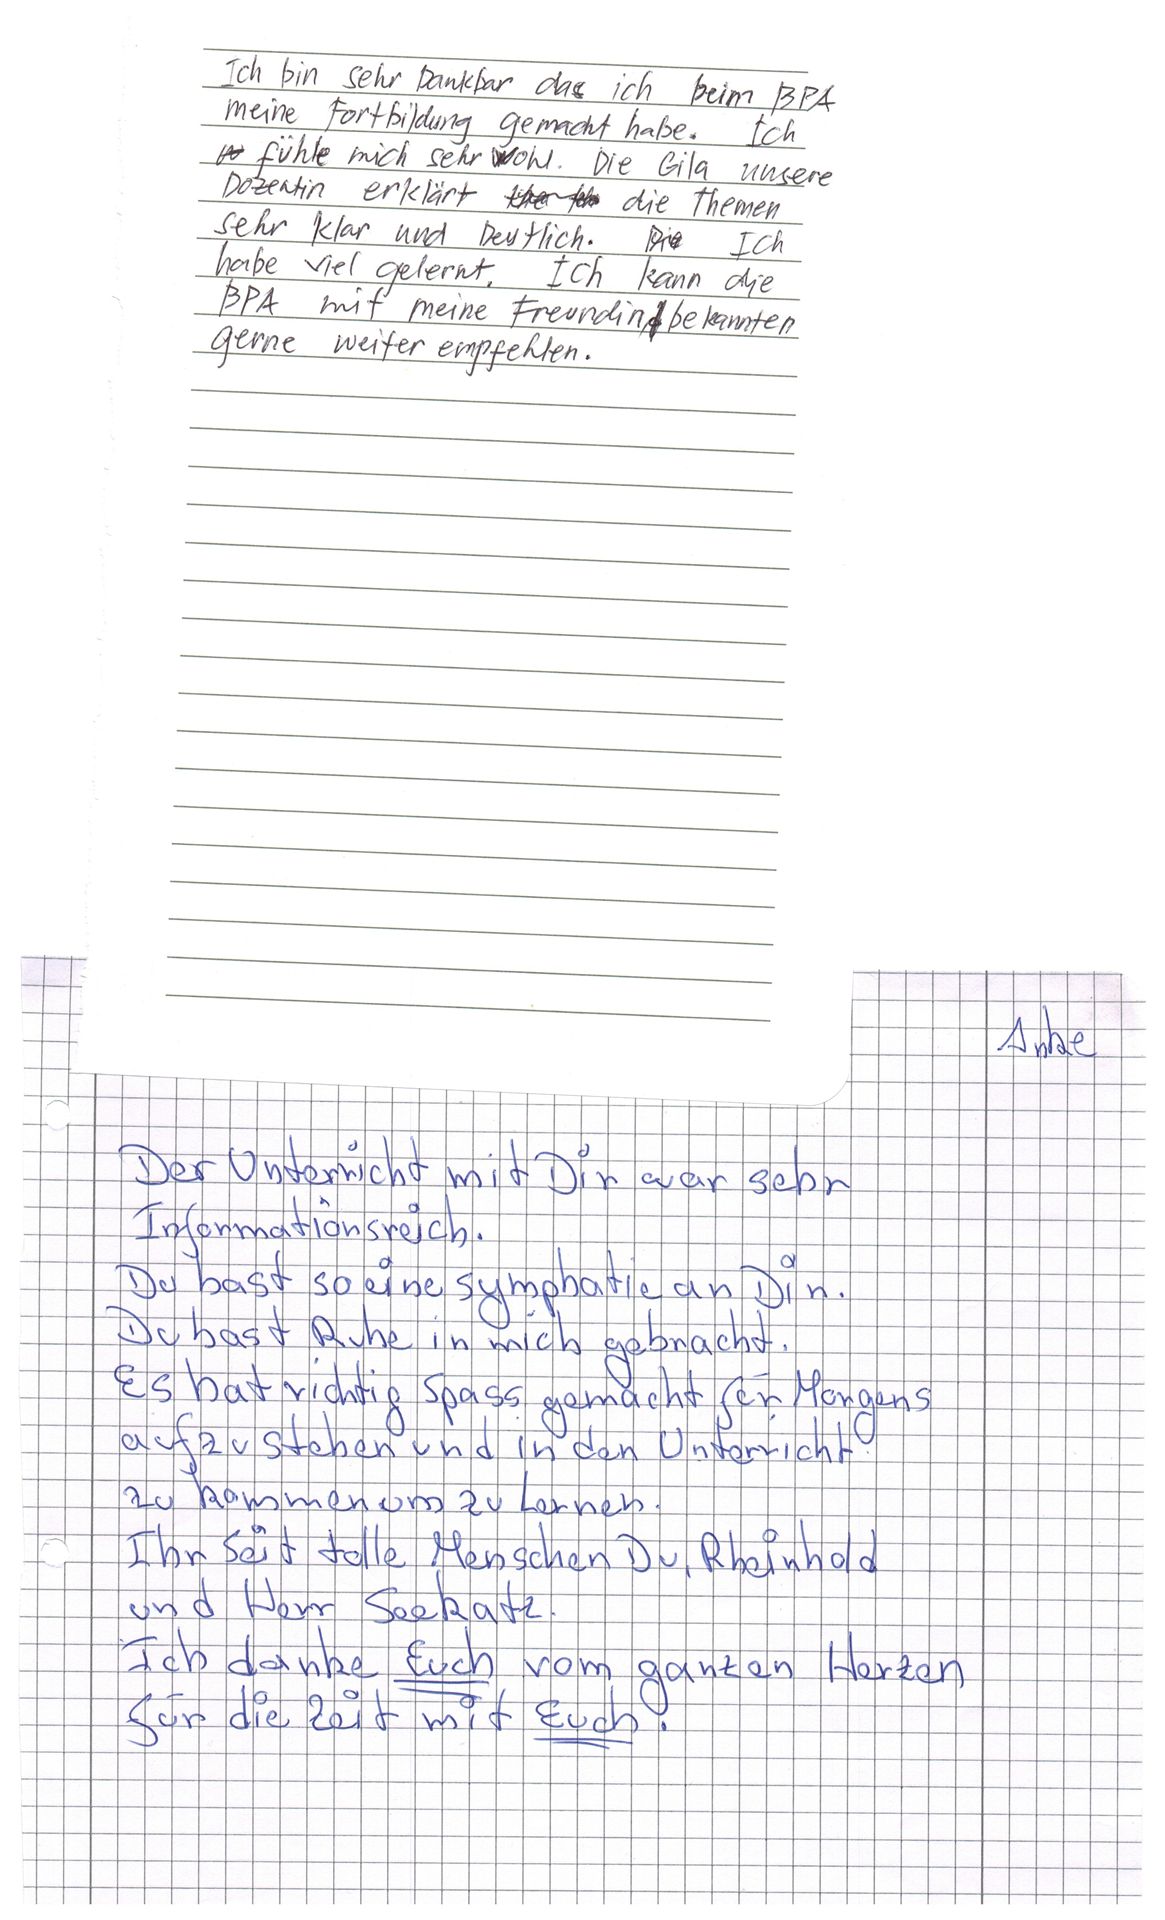 Ich bin sehr Dankbar das ich beim BPA
meine Fortbildung gemacht habe. Ich
fühle mich sehr Wohl. Die Gila unsere
Dozentin erklärt die Themen
sehr klar und Deutlich. Die Ich
habe viel gelernt. Ich kann die
BPA mit meine Freundin, bekannten
gerne weiter empfehlen.
Anke
Der Unterricht mit Dir war sehr
Informationsreich.
Du hast so eine symphatie an Dir.
Du hast Ruhe in mich gebracht.
Es hat richtig Spass gemacht für Morgens
aufzustehen und in den Unterricht
zu kommen um zu Lernen.
Ihr seit tolle Menschen Du, Rheinhold
und Herr Seekatz.
Ich danke Euch vom ganzen Herzen
für die Zeit mit Euch.